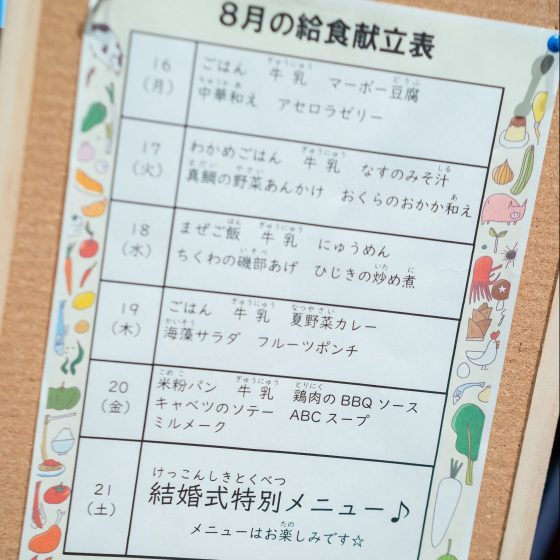 8月の給食献立表
16
(月)
ごはん 牛乳 マーボー豆腐
中華和え アセロラゼリー
17
(火)
わかめごはん 牛乳 なすのみそ汁
真鯛の野菜あんかけ おくらのおかか和え
18
(水)
まぜご飯 牛乳 にゅうめん
ちくわの磯部あげ ひじきの炒め煮
19
(木)
ごはん 牛乳 夏野菜カレー
海藻サラダ フルーツポンチ
20
(金)
米粉パン 牛乳 鶏肉のBBQソース
キャベツのソテー ABCスープ
ミルメーク
21
(土)
けっこんしきとくべつ
結婚式特別メニュー♪
メニューはお楽しみです☆